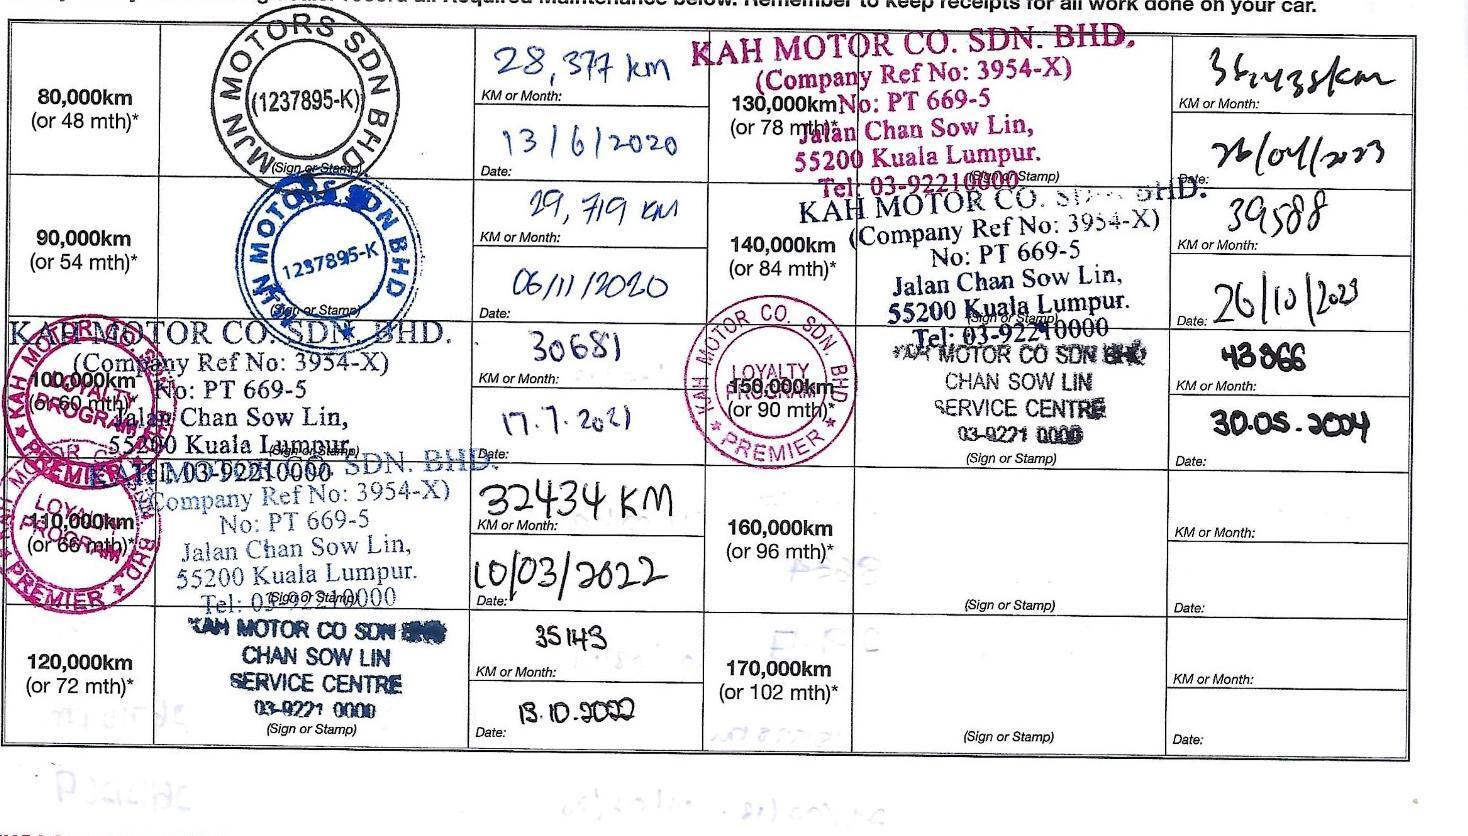 Required Maintenance below. Remember to keep receipts for all work done on your car.
80,000km
(or 48 mth)*
MJN MOTORS SDN BHD
(1237895-K)
(Sign or Stamp)
28,377 km
KM or Month:
13/6/2020
Date:
90,000km
(or 54 mth)*
MJN MOTORS SDN BHD
1237895-K
(Sign or Stamp)
29,719 KM
KM or Month:
06/11/2020
Date:
100,000km
(or 60 mth)*
KAH MOTOR CO. SDN. BHD.
(Company Ref No: 3954-X)
No: PT 669-5
Jalan Chan Sow Lin,
55200 Kuala Lumpur.
Tel: 03-92210000
KAH MOTOR CO. SDN. BHD
LOYALTY
PROGRAM
PREMIER
(Sign or Stamp)
30681
KM or Month:
17.7.2021
Date:
110,000km
(or 66 mth)*
KAH MOTOR CO. SDN. BHD.
(Company Ref No: 3954-X)
No: PT 669-5
Jalan Chan Sow Lin,
55200 Kuala Lumpur.
Tel: 03-92210000
LOYALTY
PROGRAM
PREMIER
(Sign or Stamp)
32434 KM
KM or Month:
10/03/2022
Date:
120,000km
(or 72 mth)*
KAH MOTOR CO SDN BHD
CHAN SOW LIN
SERVICE CENTRE
03-9221 0000
(Sign or Stamp)
35143
KM or Month:
13.10.2022
Date:
130,000km
(or 78 mth)*
KAH MOTOR CO. SDN. BHD.
(Company Ref No: 3954-X)
No: PT 669-5
Jalan Chan Sow Lin,
55200 Kuala Lumpur.
Tel: 03-92210000
(Sign or Stamp)
KM or Month:
26/04/2023
Date:
140,000km
(or 84 mth)*
KAH MOTOR CO. SDN. BHD.
(Company Ref No: 3954-X)
No: PT 669-5
Jalan Chan Sow Lin,
55200 Kuala Lumpur.
Tel: 03-92210000
(Sign or Stamp)
39588
KM or Month:
26/10/2023
Date:
150,000km
(or 90 mth)*
KAH MOTOR CO. SDN. BHD
LOYALTY
PROGRAM
PREMIER
KAH MOTOR CO SDN BHD
CHAN SOW LIN
SERVICE CENTRE
03-9221 0000
(Sign or Stamp)
43866
KM or Month:
30.05.2004
Date:
160,000km
(or 96 mth)*
(Sign or Stamp)
KM or Month:
Date:
170,000km
(or 102 mth)*
(Sign or Stamp)
KM or Month:
Date: